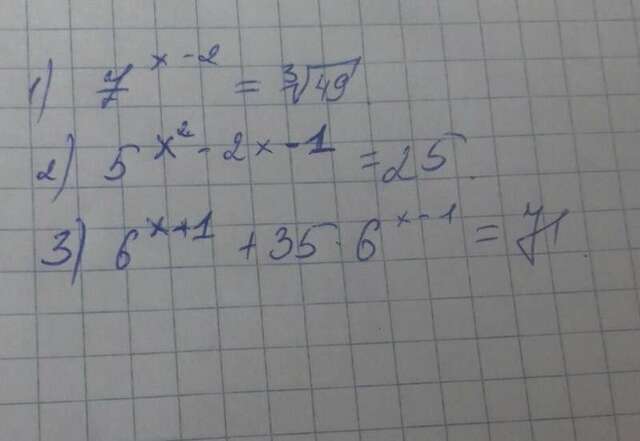 1) 7^{x-2} = ∛49
2) 5^{x²-2x-1} = 25.
3) 6^{x+1} + 35 · 6^{x-1} = 71